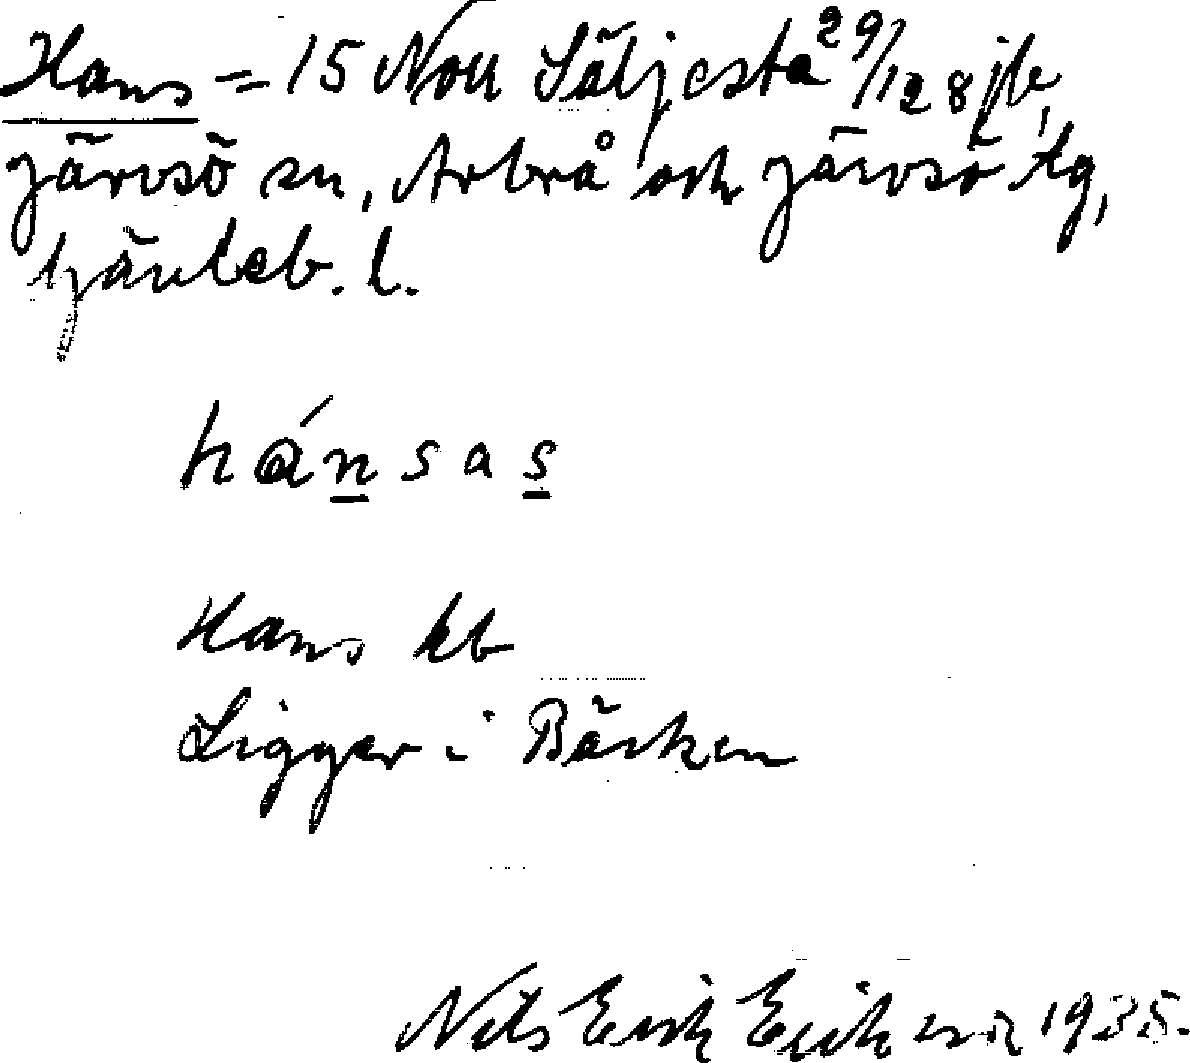 Hans = 15 Norr Säljesta 29/128 jb,
Järvsö sn, Arbrå och Järvsö tg,
Gävleb. l.
hánsas
Hans kb
Ligger i Bäcken
Nils Erik Eriksson 1935.